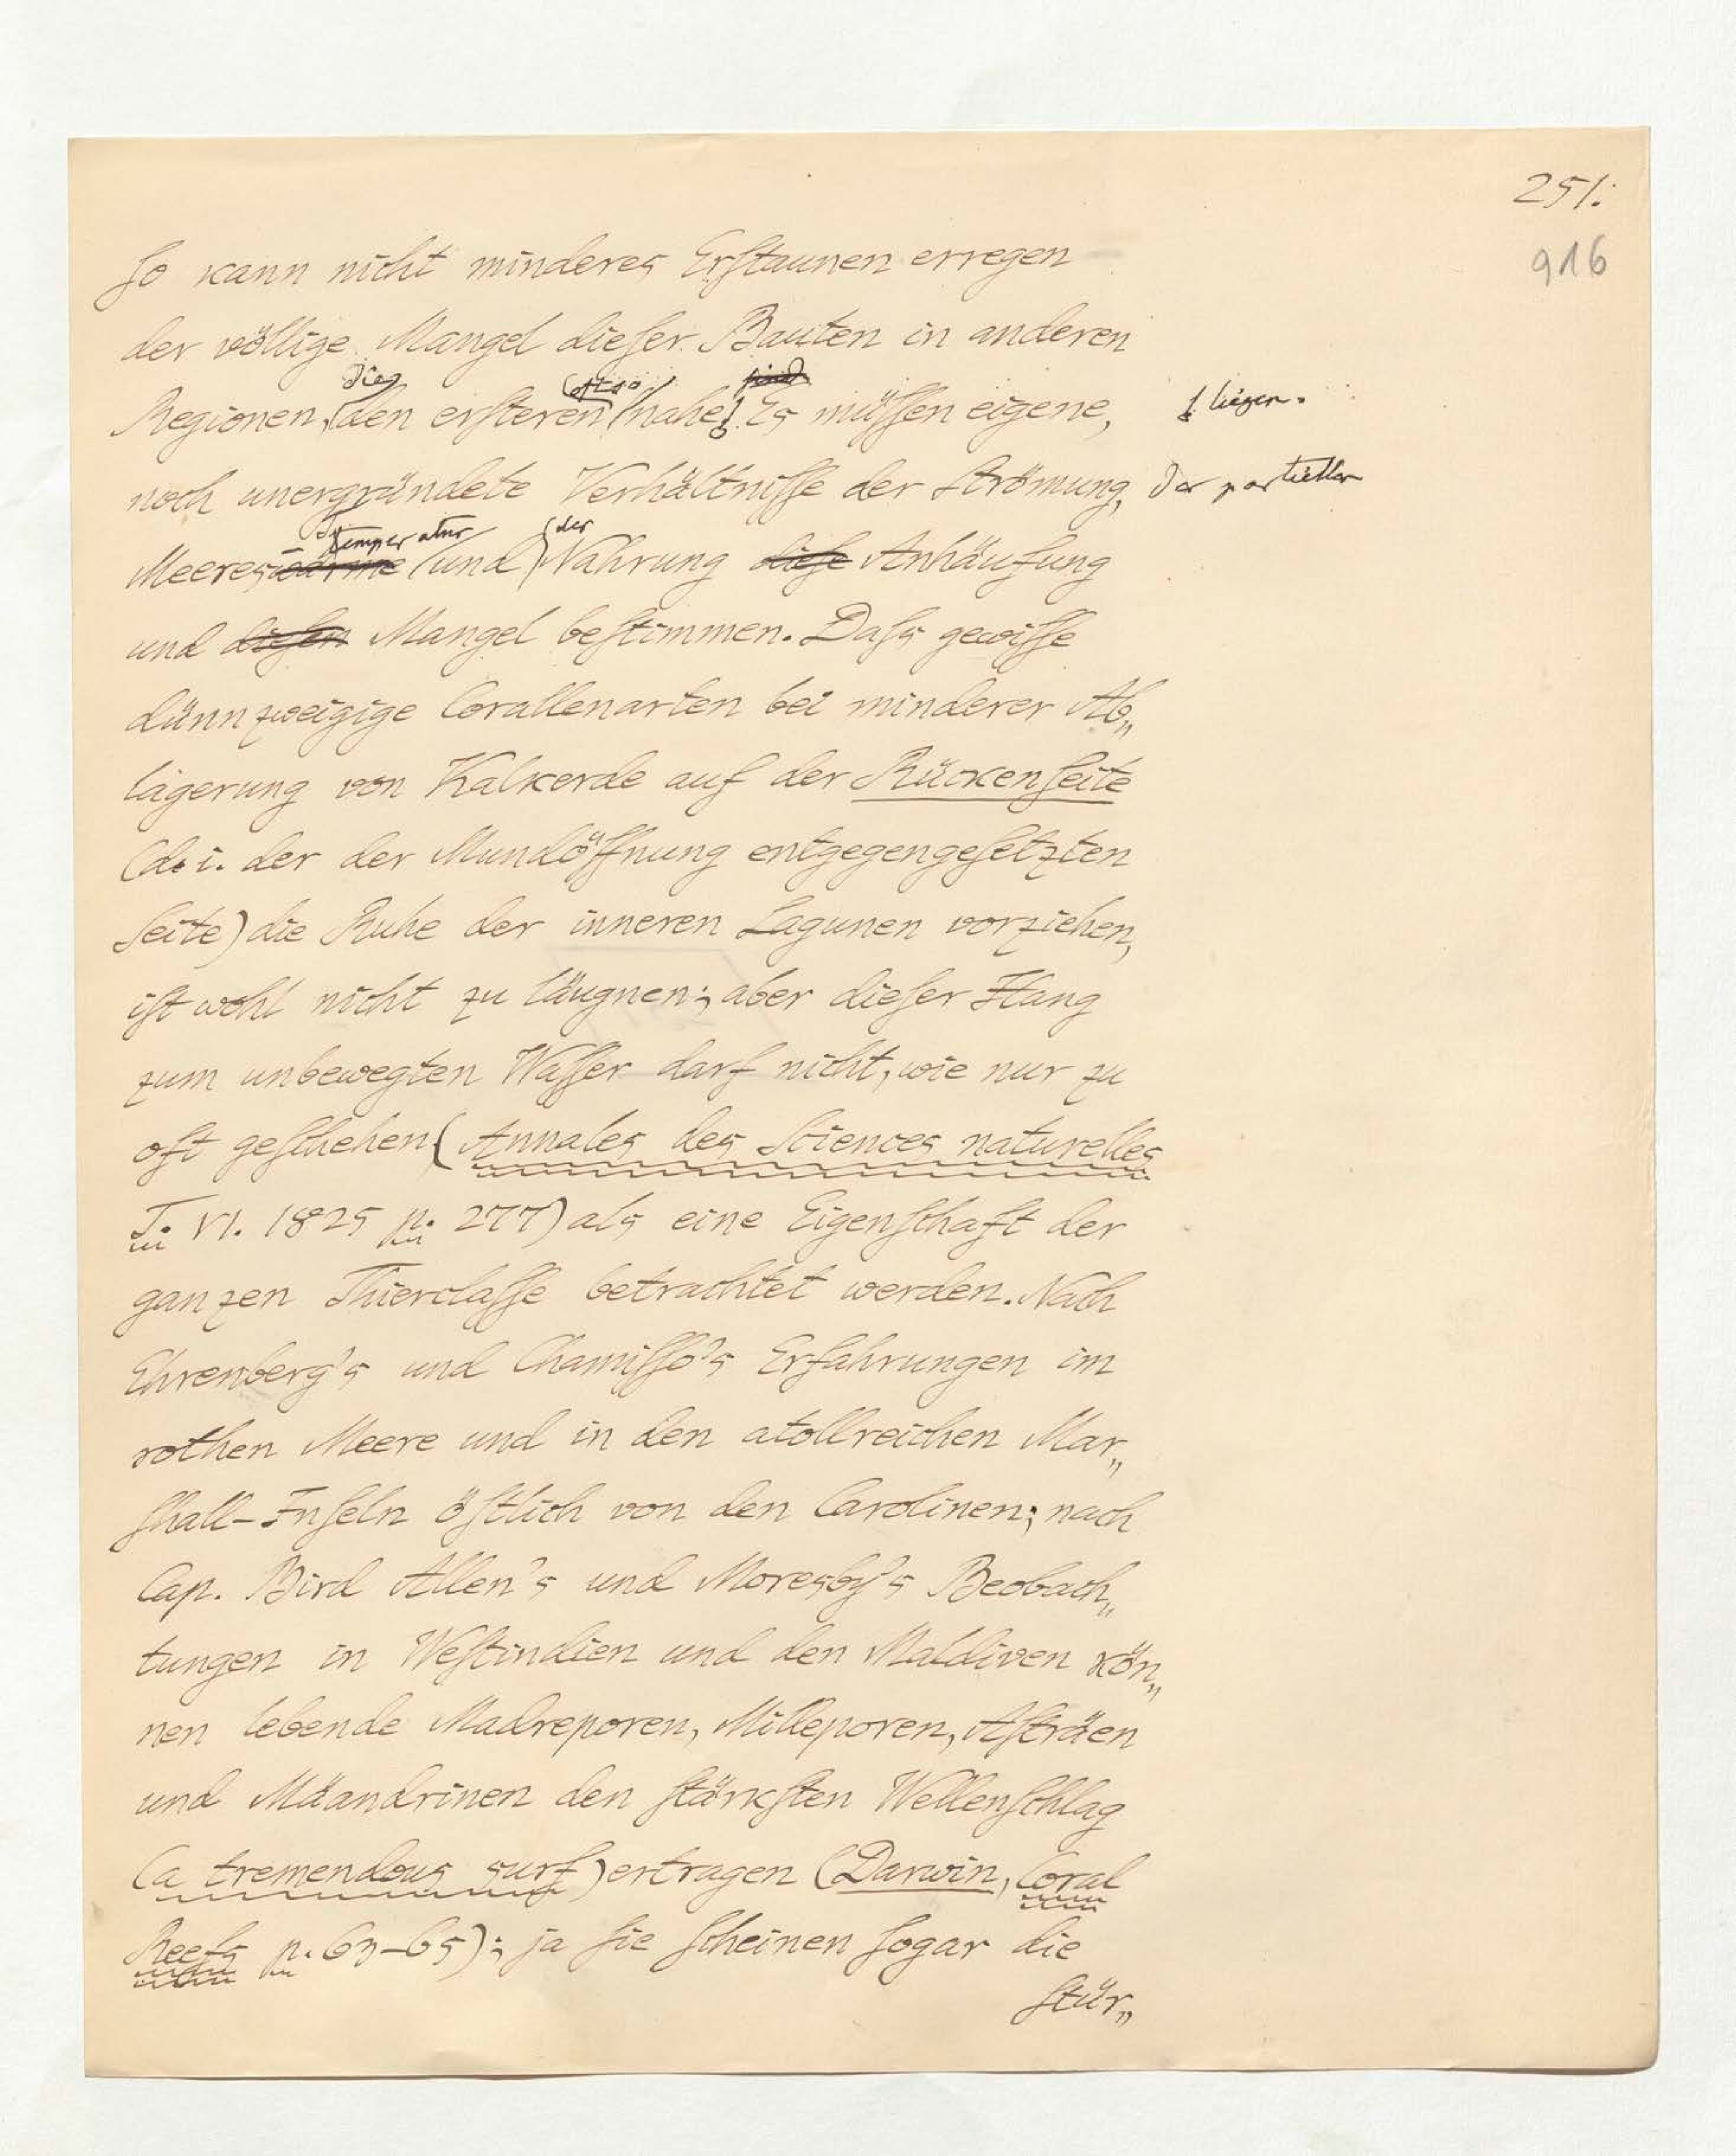 251.
916
So kann nicht minderes Erstaunen erregen
der völlige Mangel dieser Bauten in anderen
die oft so sind
Regionen, den ersteren nahe. Es müssen eigene, liegen.
noch unergründete Verhältnisse der Strömung, der partiellen
Temperatur der
Meereswärme und Nahrung diese Anhäufung
und diesen Mangel bestimmen. Dass gewisse
dünnzweigige Corallenarten bei minderer Ab„
lagerung von Kalkerde auf der Rückenseite
(d. i. der der Mundöffnung entgegengesetzten
Seite) die Ruhe der inneren Lagunen vorziehen,
ist wohl nicht zu läugnen; aber dieser Hang
zum unbewegten Wasser darf nicht, wie nur zu
oft geschehen (Annales des Sciences naturelles
T. VI. 1825 p. 277) als eine Eigenschaft der
ganzen Thierclasse betrachtet werden. Nach
Ehrenberg's und Chamisso's Erfahrungen im
rothen Meere und in den atollreichen Mar„
shall-Inseln östlich von den Carolinen; nach
Cap. Bird Allen's und Moresby's Beobach„
tungen in Westindien und den Maldiven kön„
nen lebende Madreporen, Milleporen, Asträen
und Mäandrinen den stärksten Wellenschlag
(a tremendous surf) ertragen (Darwin, Coral
Reefs p. 63-65); ja sie scheinen sogar die
stür„